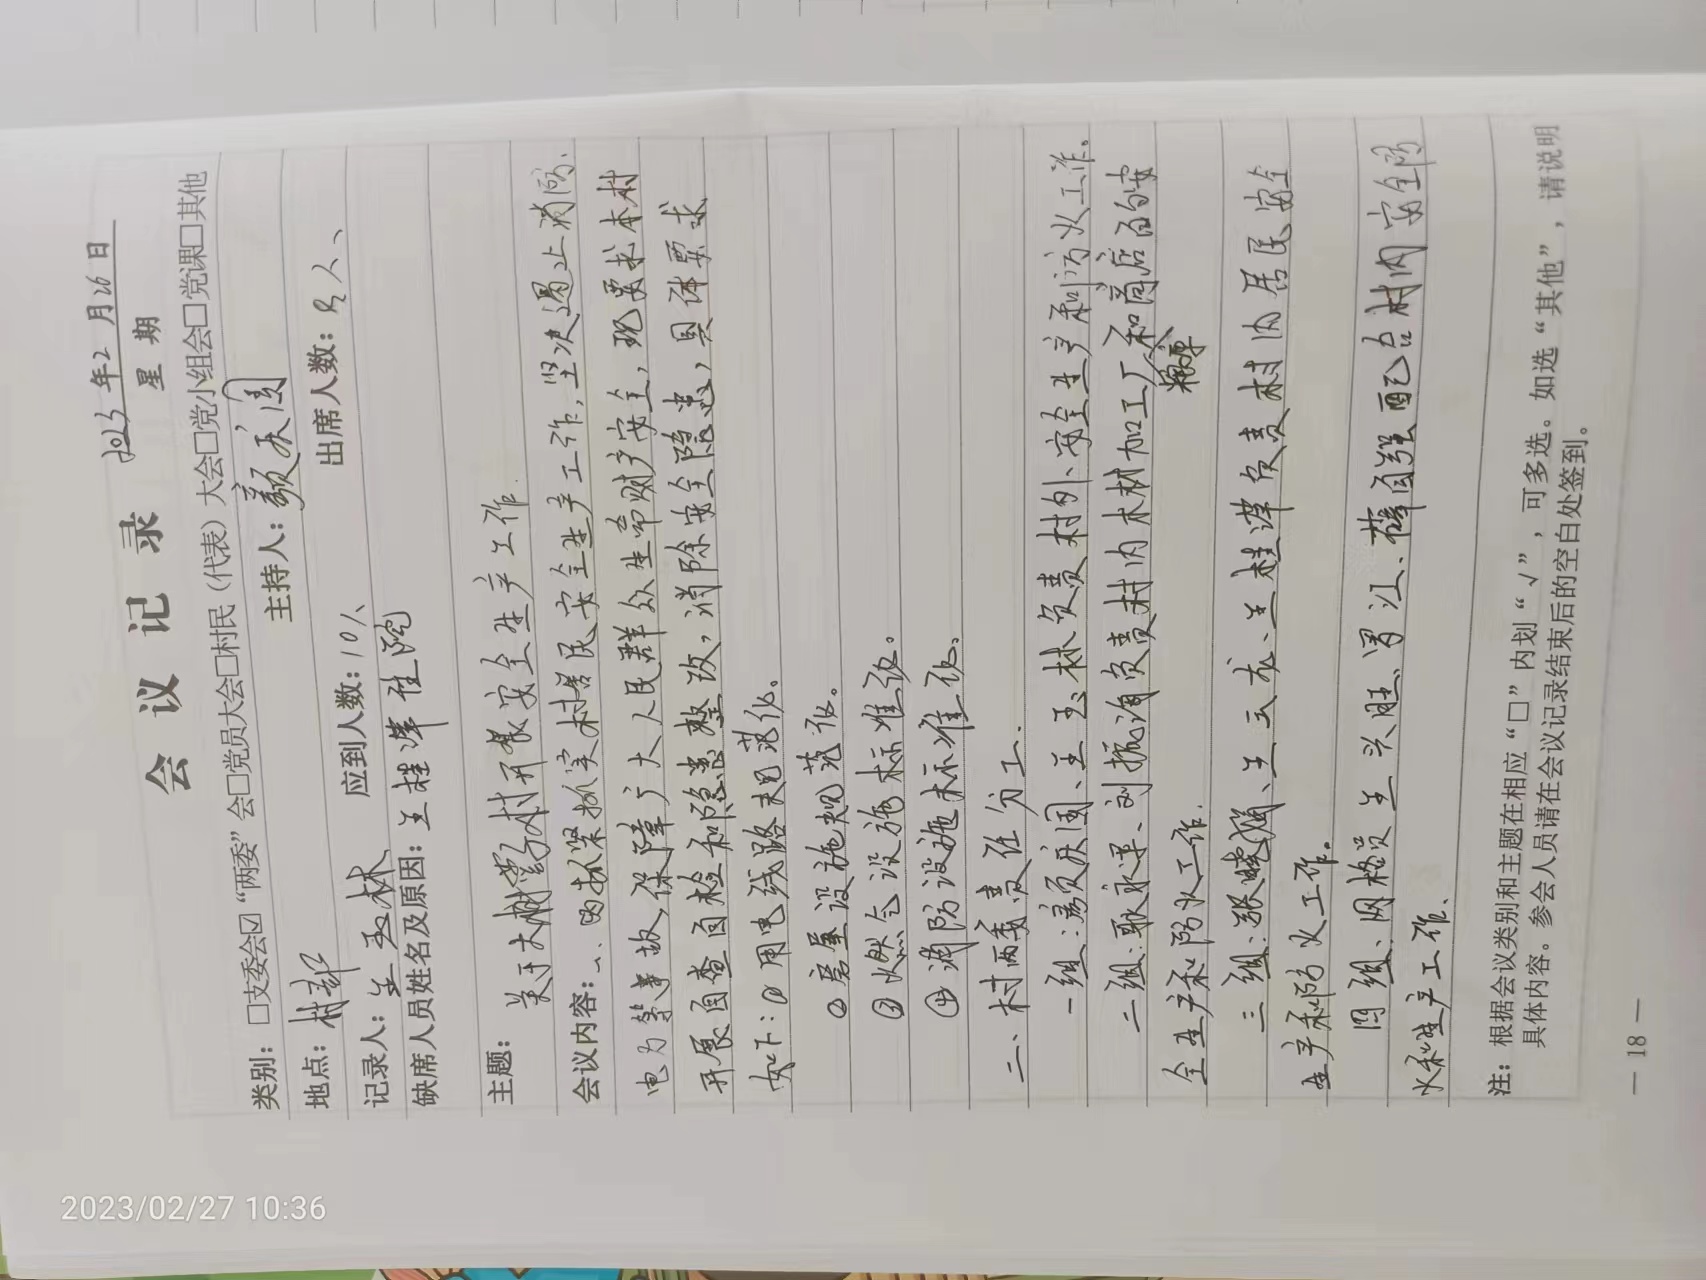 会 议 记 录
2023 年 2 月 26 日
星 期
类别：□支委会☑“两委”会□党员大会□村民（代表）大会□党小组会□党课□其他
地点：村部 主持人：庆国
记录人：王玉林 应到人数：10人 出席人数：9人、
缺席人员姓名及原因：王桂 住院
主题：
关于大村开展安全生产工作.
会议内容：一、为抓紧抓实村居民安全生产工作，坚决遏止消防、
电力等事故，保障广大人民群众生命财产安全，现要求本村
开展自查自检和隐患整改，消除安全隐患，具体要求
如下：①用电线路规范化。
②房屋设施规范化。
③燃气设施标准化。
④消防设施标准化、
二、村两委责任分工.
一组：庆国、王玉林负责村外安全生产和防火工作。
二组：耿永平、刘振海负责村内木材加工厂和商店的安
粮库
全生产和防火工作.
三组：张、王云龙、王桂 负责村内居民安全
生产和防火工作。
四组：网格员王兴胜、贾江、薛自强配合村内安全防
火和生产工作、
注：根据会议类别和主题在相应“□”内划“√”，可多选。如选“其他”，请说明
具体内容。参会人员请在会议记录结束后的空白处签到。
— 18 —
2023/02/27 10:36